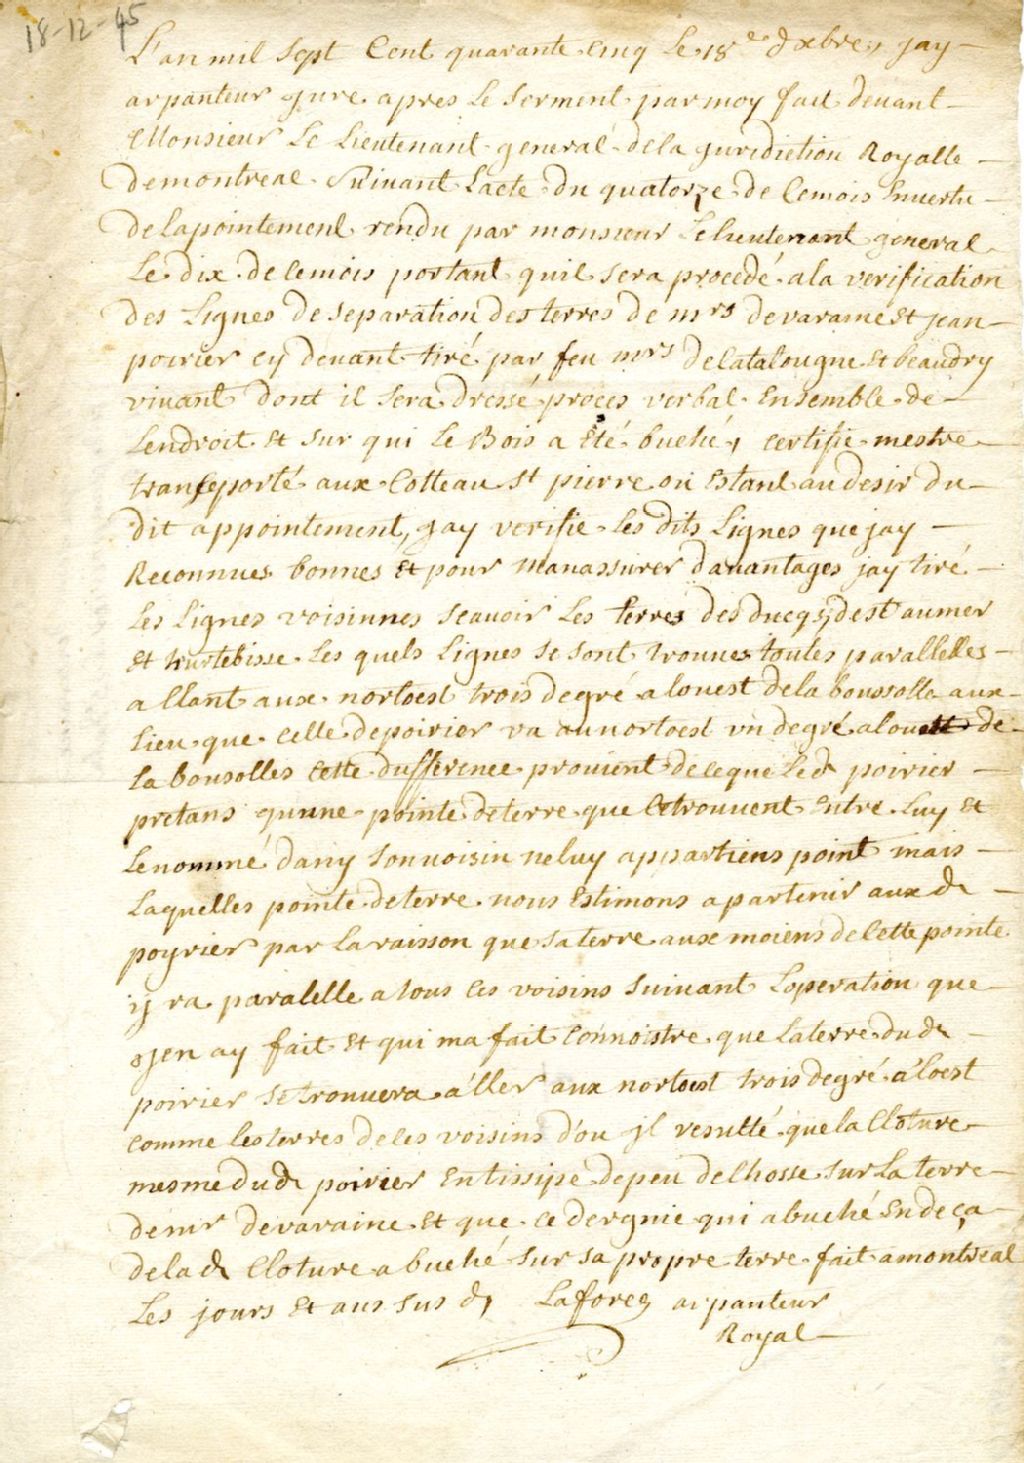 18-12-45
L'an mil sept Cent quarante cinq le 18e dxbre, jay
arpanteur jure apres le serment par moy fait devant
Monsieur Le Lieutenant general de la juridiction Royalle
de montreal suivant Lacte du quatorze de Cemois Envertu
de lapointement rendu par monsieur Le lieutenant general
Le dix de Cemois portant quil sera procedé a la verification
des Lignes de separation des terres de mrs de varaine et jean
poirier cy devant tiré par feu mrs de Catalougne et beaudry
vivant dont il sera dressé proces verbal Ensemble de
Lendroit et sur qui le Bois a Eté buché, certifie mestre
transporté aux Cotteau St pierre ou Estant au desir du
dit appointement, jay verifie les dits Lignes que jay
Reconnues bonnes et pour manassurer davantages jay tiré
les Lignes voisinnes scavoir les terres des ducqs, de st aumer
et turtebisse les quels Lignes se sont trouues toutes parallelles
allant aux nortoest trois degré a louest de la boussolle aux
Lieu que celle de poirier va au nortoest un degré a louest de
la bousolles cette dufference provient de ceque le d poirier
pretans qunne pointe de terre que Cetrouvent Entre Luy et
Le nommé dany son voisin neluy appartiens point mais
Laquelles pointe de terre nous Estimons apartenir aux d
poyrier par La raisson que sa terre aux moiens de Cette pointe
ij va paralelle a tous ces voisins suivant Loperation que
jen ay fait et qui ma fait Connoistre que La terre du d
poirier se trouvera aller aux nortoest trois degré a loest
Comme les terres de ces voisins d'ou jl resulté que la Cloture
mesme du d poirier Entissipe de peu de Chosse sur La terre
de mr de varaine et que ce dergnie qui a buché En deça
de la d Cloture a buché sur sa propre terre fait a montreal
Les jours et ans sus d, Laforeg arpanteur
Royal